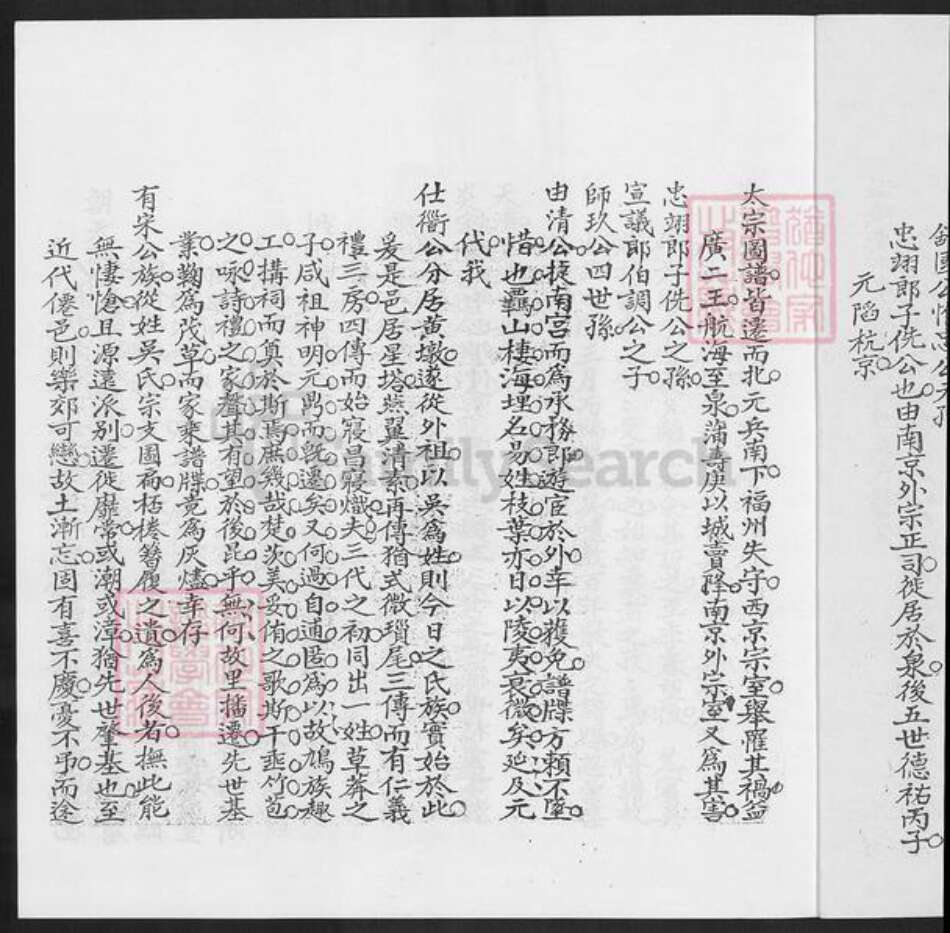 忠翊郎子侁公也由南京外宗正司徙居於泉後五世德祐丙子
元陷杭京
太宗圖譜皆遷而北元兵南下福州失守西京宗室舉罹其禍益
廣二王航海至泉蒲壽庚以城賣降南京外宗室又為其害
忠翊郎子侁公之孫
宣議郎伯調公之子
師玖公四世孫
由清公掟南宮而為承務郎遊宦於外幸以獲免譜牒方賴不墜
惜也羈山棲海埋名易姓枝葉亦日以陵夷衰微矣延及元
代我
仕衢公分居黃墩遂從外祖以吳為姓則今日之氏族實始於此
爰是邑居星塔燕翼清素再傳猶式微瑣尾三傳而有仁義
禮三房四傳而始寢昌寢熾夫三代之初同出一姓草莽之
子咸祖神明元鼎而既遷矣又何過自逋匿為以故鳩族趣
工搆祠而奠於斯焉庶幾哉楚茨美妥侑之歌斯干歪竹苞
之咏詩禮之家聲其有望於後昆乎無何故里播遷先世基
業鞠為茂草而家乘譜牒竟為灰燼幸存
有宋公族從姓吳氏宗支圖扁桮棬簪履之遺為人後者撫此能
無悽愴且源遠派別遷徙靡常或潮或漳猶先世肇基也至
近代僊邑則樂郊可戀故土漸忘固有喜不慶憂不弔而途
FamilySearch